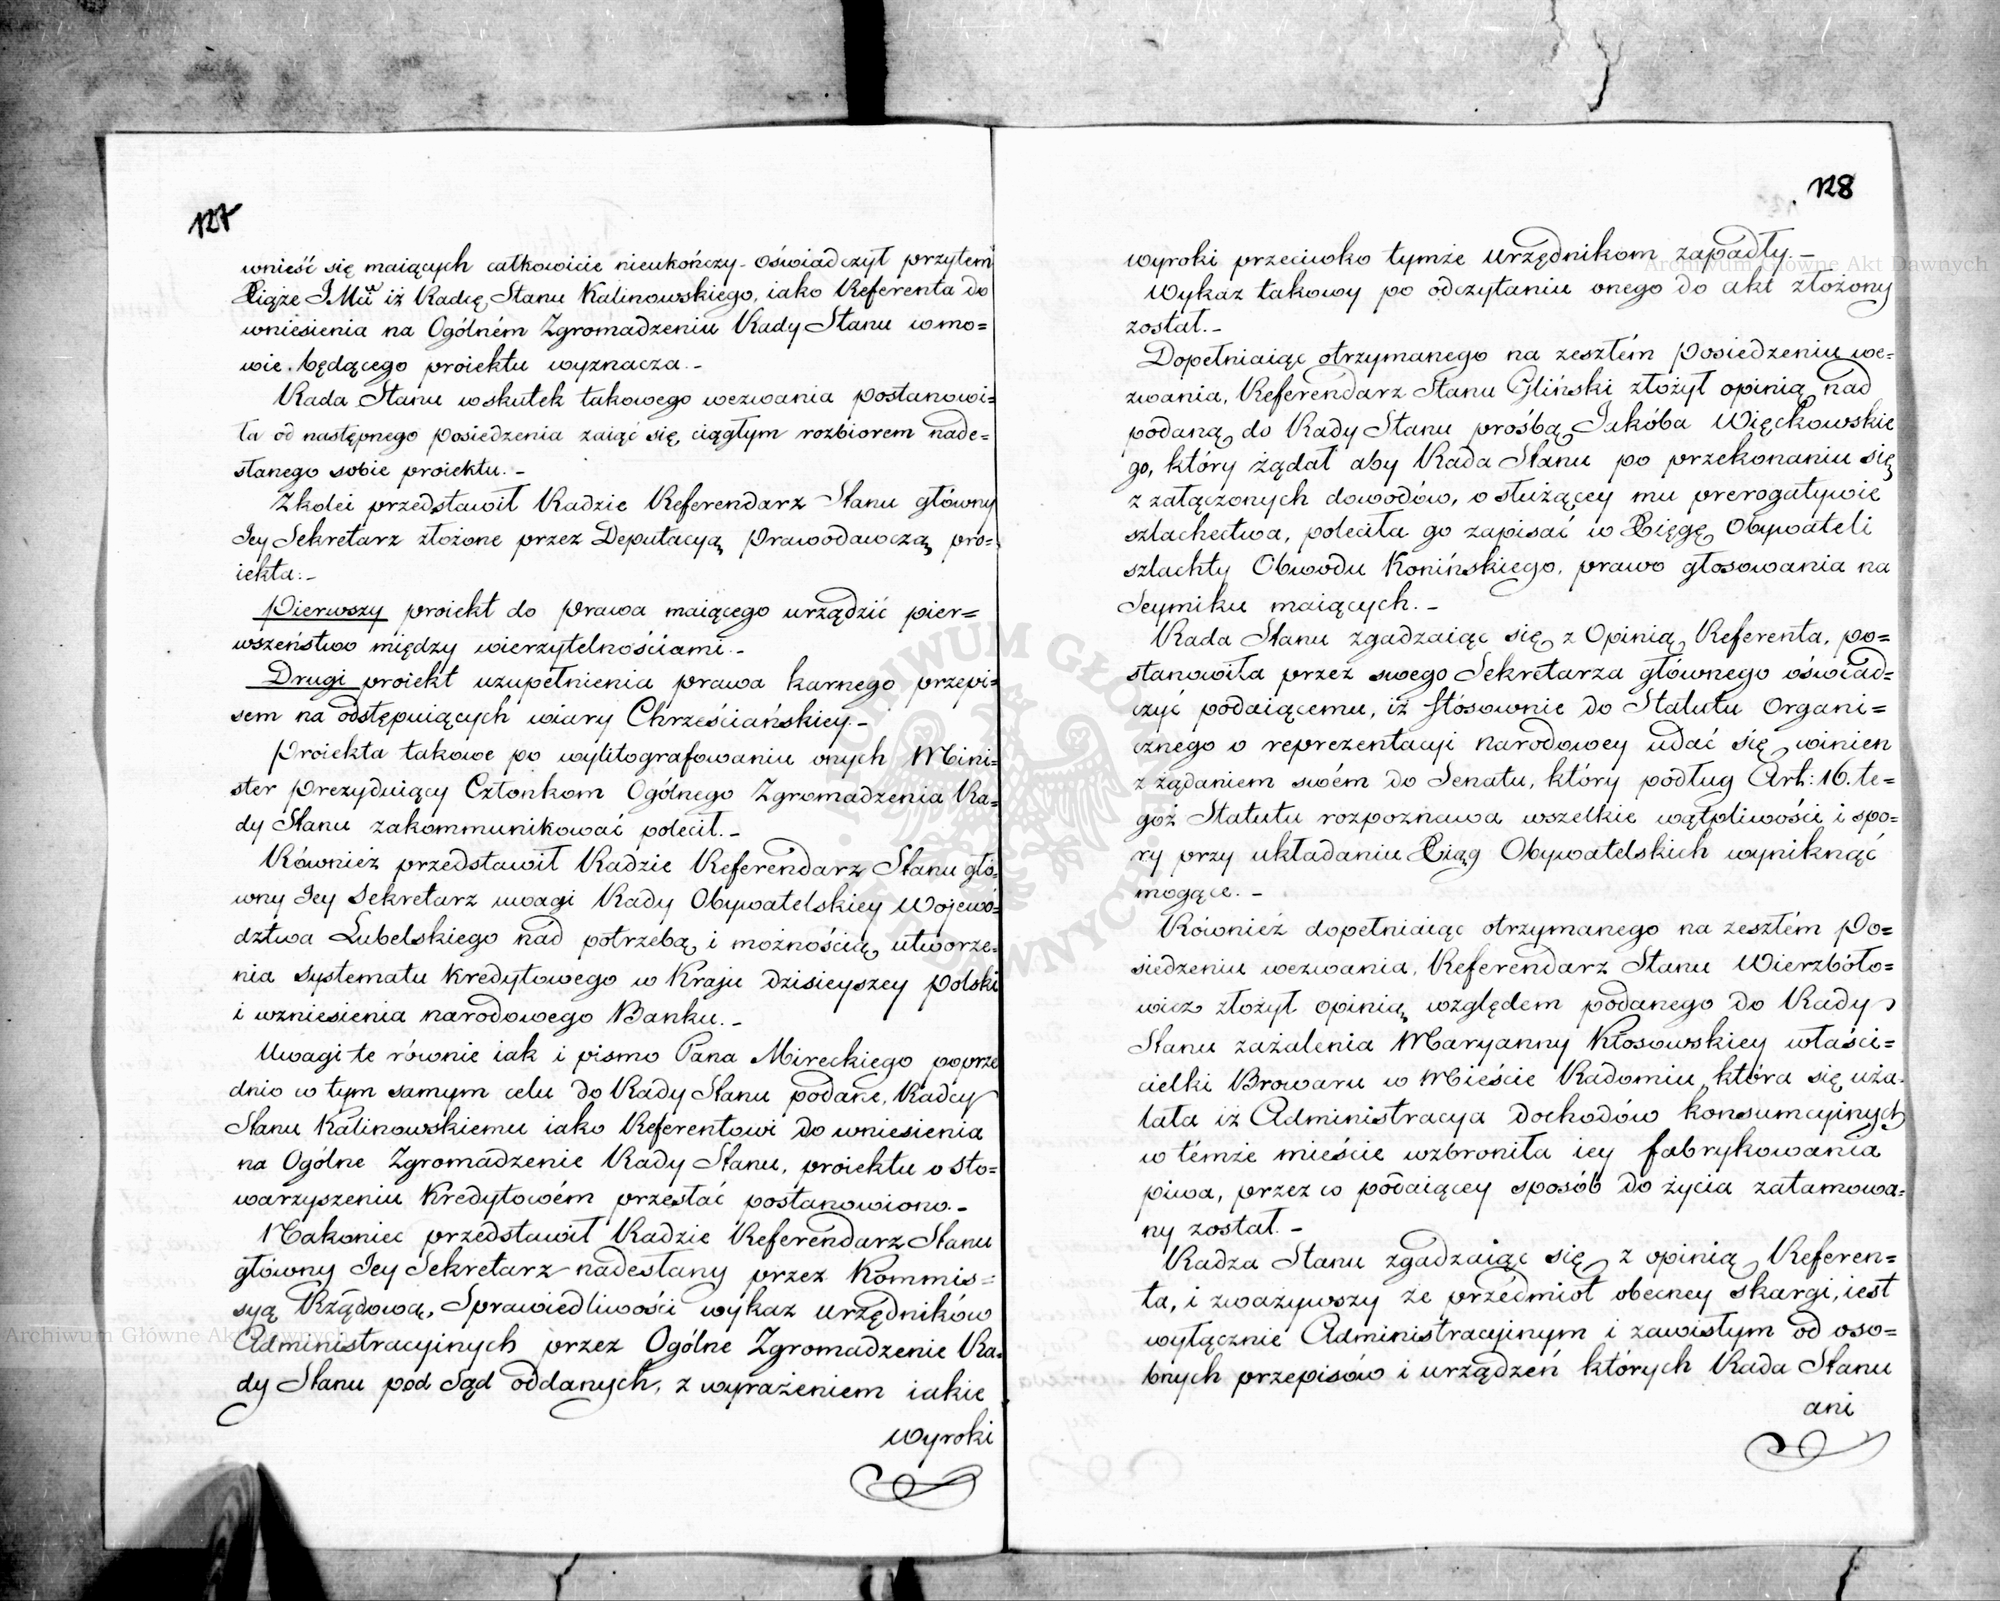 127
wnieść się maiących całkowicie nieukończy - oświadczył przytem
Xiąże JMć iż Radcę Stanu Kalinowskiego, iako Referenta do
wniesienia na Ogólném Zgromadzeniu Rady Stanu w mo=
wie będącego proiektu wyznacza. -
Rada Stanu wskutek takowego wezwania postanowi=
ła od następnego posiedzenia zaiąć się ciągłym rozbiorem nade=
słanego sobie proiektu. -
Zkolei przedstawił Radzie Referendarz Stanu główny
Jey Sekretarz złożone przez Deputacyą Prawodawczą pro=
iekta: -
Pierwszy proiekt do prawa maiącego urządzić pier=
wszeństwo między wierzytelnościami. -
Drugi proiekt uzupełnienia prawa karnego przepi=
sem na odstępuiących wiary Chrześciańskiey. -
Proiekta takowe po wylitografowaniu onych Mini=
ster Prezyduiący Członkom Ogólnego Zgromadzenia Ra=
dy Stanu zakommunikować polecił. -
Również przedstawił Radzie Referendarz Stanu głó=
wny Jey Sekretarz uwagi Rady Obywatelskiey Wojewó=
dztwa Lubelskiego nad potrzebą i możnością utworze=
nia systematu kredytowego w Kraju dzisieyszey Polski
i wzniesienia narodowego Banku. -
Uwagi te równie iak i pismo Pana Mireckiego poprze
dnio w tym samym celu do Rady Stanu podane, Radcy
Stanu Kalinowskiemu iako Referentowi do wniesienia
na Ogólne Zgromadzenie Rady Stanu, proiektu o sto=
warzyszeniu Kredytowém przesłać postanowiono. -
Nakoniec przedstawił Radzie Referendarz Stanu
główny Jey Sekretarz nadesłany przez Kommis=
syą Rządową Sprawiedliwości wykaz urzędników
Administracyinych przez Ogólne Zgromadzenie Ra=
dy Stanu pod Sąd oddanych, z wyrażeniem iakie
wyroki
128
wyroki przeciwko tymże urzędnikom zapadły. -
Wykaz takowy po odczytaniu onego do akt złożony
został. -
Dopełniaiąc otrzymanego na zeszłém posiedzeniu we=
zwania, Referendarz Stanu Gliński złożył opinią nad
podaną do Rady Stanu prośbą Jakóba Więckowskie
go, który żądał aby Rada Stanu po przekonaniu się
z załączonych dowodów, o służącey mu prerogatywie
szlachectwa, poleciła go zapisać w Xięgę Obywateli
szlachty Obwodu Konińskiego, prawo głosowania na
Seymiku maiących. -
Rada Stanu zgadzaiąc się z Opinią Referenta, po=
stanowiła przez swego Sekretarza głównego oświad=
czyć podaiącemu, iż stósownie do Statutu Organi=
cznego o reprezentacyi narodowey udać się winien
z żądaniem swém do Senatu, który podług Art: 16. te=
goż Statutu rozpoznawa wszelkie wątpliwości i spo=
ry przy układaniu Xiąg Obywatelskich wyniknąć
mogące. -
Również dopełniaiąc otrzymanego na zeszłém Po=
siedzeniu wezwania, Referendarz Stanu Wierzbóło=
wicz złożył opinią względem podanego do Rady
Stanu zażalenia Maryanny Kłosowskiey właści=
cielki Browaru w Mieście Radomiu, która się uża=
lała iż Administracya dochodów konsumcyinych
w témże mieście wzbroniła iey fabrykowania
piwa, przez co podaiącey sposób do życia zatamowa=
ny został. -
Radza Stanu zgadzaiąc się z opinią Referen=
ta, i zważywszy że przedmiot obecney skargi, iest
wyłącznie Administracyinym i zawisłym od oso=
bnych przepisów i urządzeń których Rada Stanu
ani
Archiwum Główne Akt Dawnych
Archiwum Główne Akt Dawnych
ARCHIWUM GŁÓWNE AKT DAWNYCH